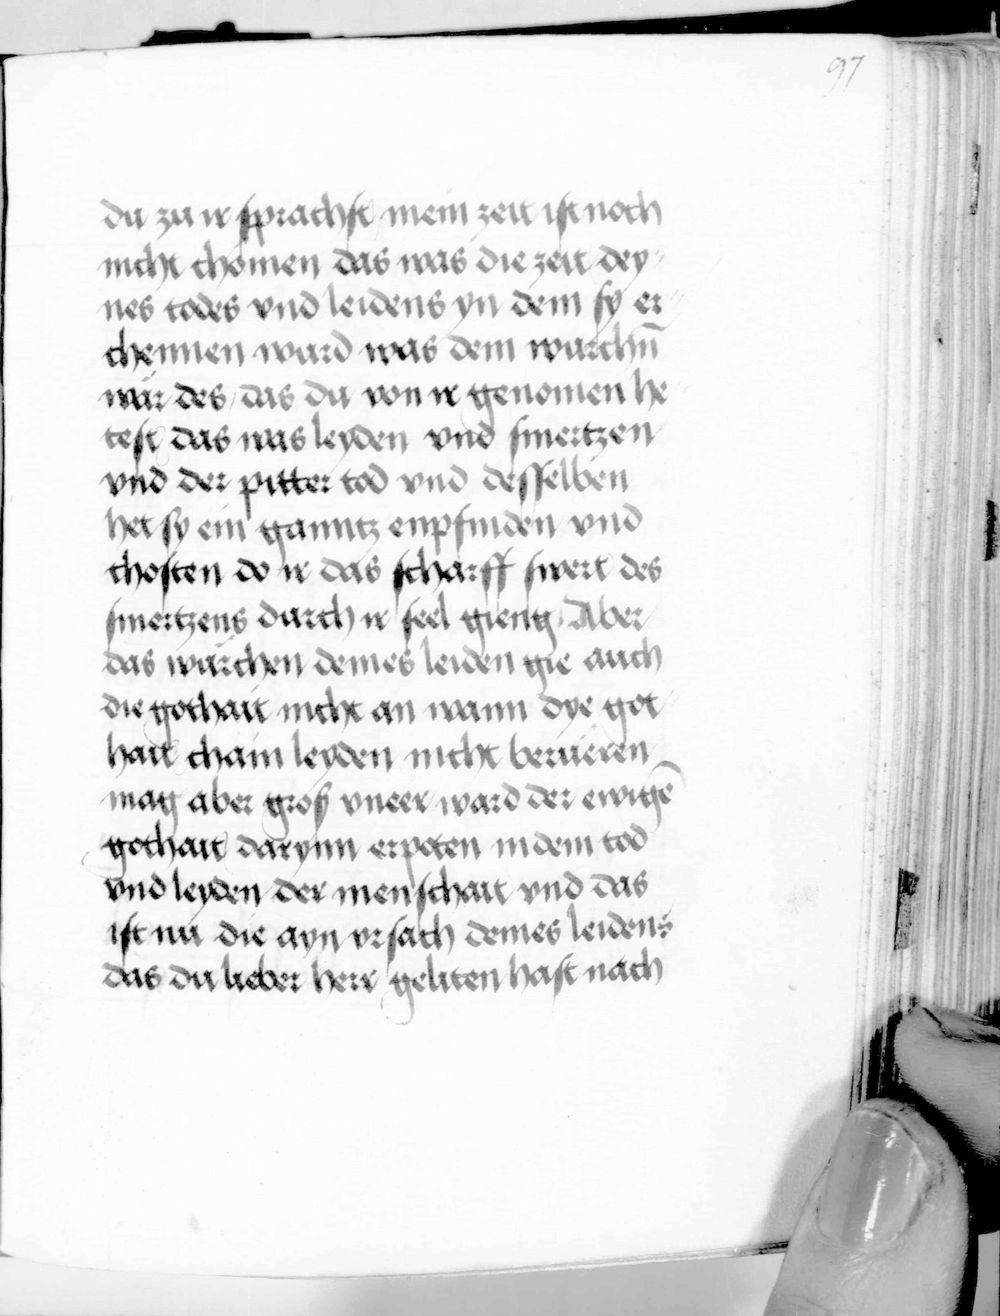 97
du zu ir sprachst mein zeit ist noch
nicht chomen das was die zeit dey-
nes todes vnd leidens yn dem sy er-
chennen ward was dem warchn̄
wär des das du von ir genomen he
test das was leyden vnd smertzen
vnd der pitter tod vnd desselben
het sy ein ganntz enpfinden vnd
chosten do ir das scharff swert des
smertzens durch ir seel gieng Aber
das würchen deines leiden gie auch
die gothait nicht an wann dye got-
hait chain leyden nicht berüeren
mag aber groß vneer ward der ewigē
gothait darynn erpoten in dem tod
vnd leyden der menschait vnd das
ist nu die ayn vrsach deines leidens
das du lieber herr geliten hast nach